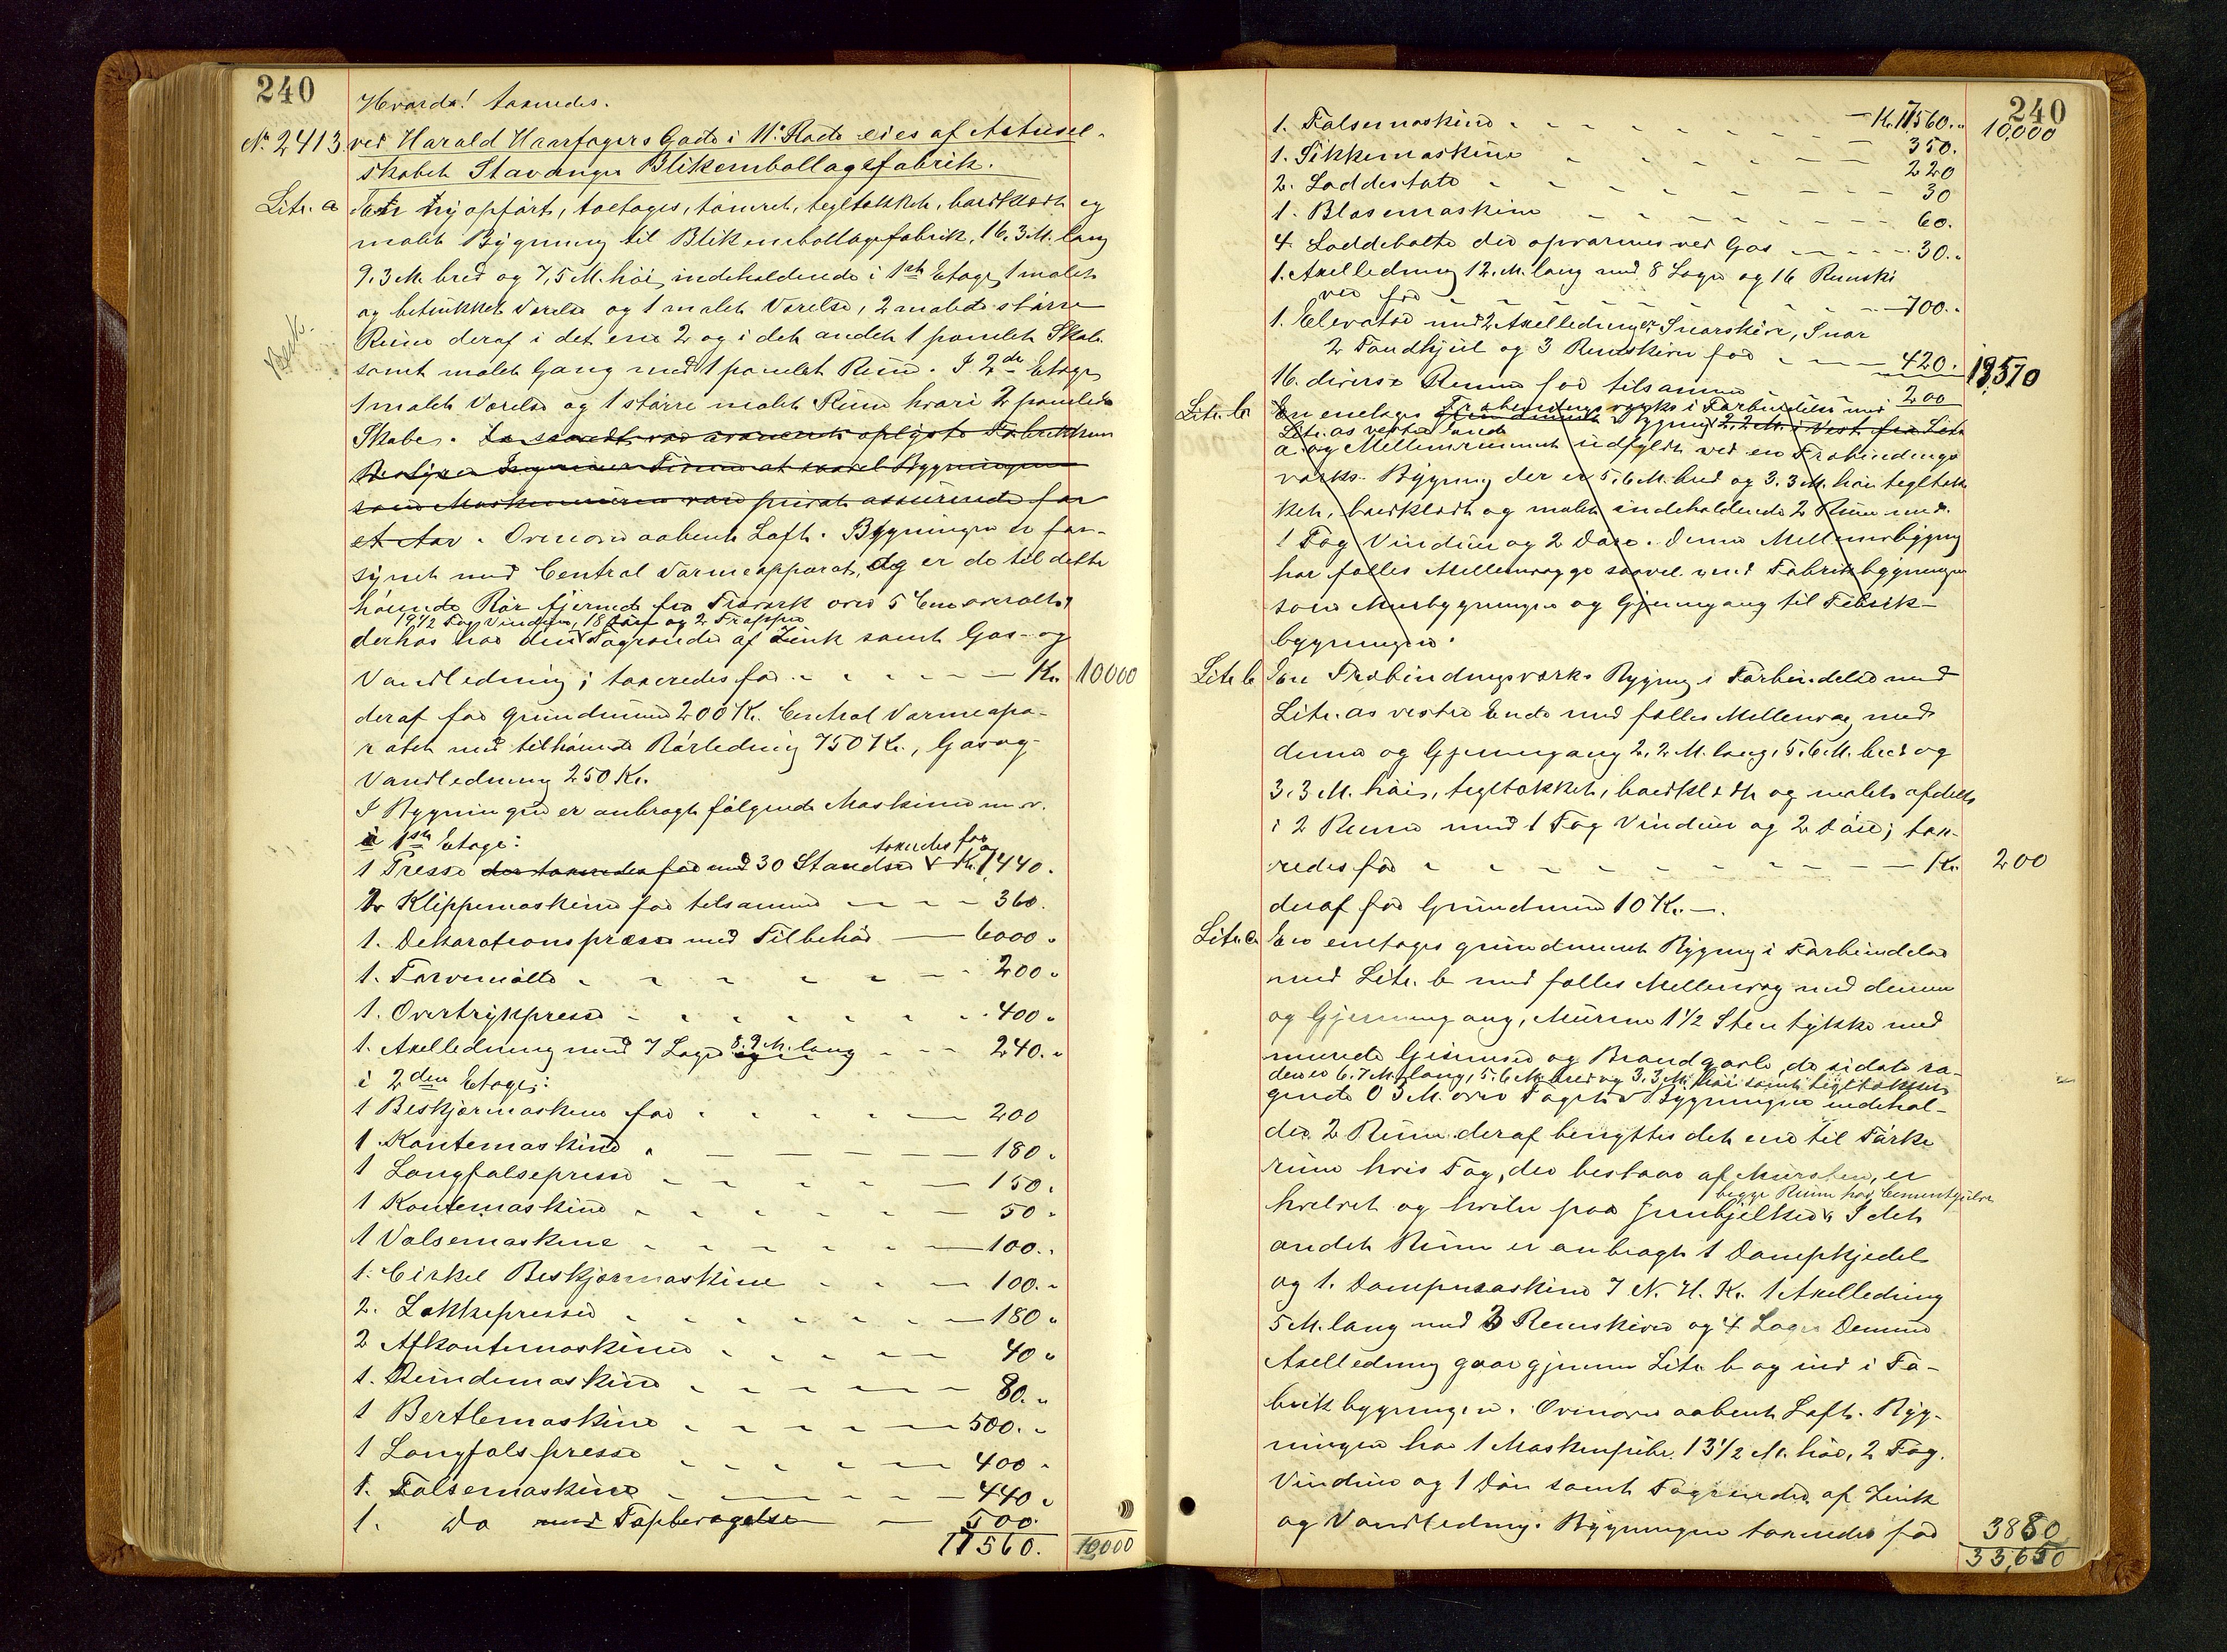 240
Hvorda! taxeredes.
No 2413. ved Harald Haarfagers Gade i 11te Rode eies af Actiesel-
skabet Stavanger Blikemballagefabrik.
Litr. a En ny opført, toetages, tømret, tegltækket, bordklædt og
malet Bygning til Blikemballagefabrik, 16,3 M. lang
9,3 M. bred og 7,5 M. høi, indeholdende i 1ste Etage 1 malet
og betrukket Værelse og 1 malet Værelse, 2 malede større
Rum deraf i det ene 2 og i det andet 1 panelet Skab.
samt malet Gang med 1 panelet Rum. I 2den Etage
1 malet Værelse og 1 større malet Rum hvori 2 panelede
Skabe.
som Maskineriene vare privat assurerede for
et Aar. Ovenover aabent Loft. Bygningen er for-
synet med Central Varmeapparat, og er de til dette
hørende Rør fjernede fra Træværk over 5 Cm overalt,
19 1/2 Fag Vinduer, 18 Døre og 2 Trapper
derhos har den Tagrender af Zink samt Gas- og
Vandledning; taxeredes for - - - - - Kr. 10000
deraf for Grundmur 200 Kr. Central Varmeapa-
ratet med tilhørende Rørledning 750 Kr., Gas og
Vandledning 250 Kr.
I Bygningen er anbragt følgende Maskiner m. v.
i 1ste Etage:
taxeredes for
1 Presse der taxeredes for med 30 Standser Kr. 1,440.
2 Klippemaskiner for tilsammen - - - 360.
1. Dekorationspresse med Tilbehør - 6000.
1. Farvemølle - - - - - - 200.
1. Overtrykpresse - - - - - - 400.
1. Axelledning med 7 Lager 8,9 M. lang - - 240.
i 2den Etage:
1 Beskjærmaskine for - - - - - 200
1 Kantemaskine - - - - - 180.
1 Langfalsepresse - - - - - 150.
1 Kantemaskine - - - - - 50.
1 Valsemaskine - - - - - 100.
1. Cirkel Beskjærmaskine - - - 100.
2. Lokkepresser - - - - - 180.
2 Afkantemaskiner - - - - - 40.
1. Rundemaskine - - - - - 80.
1 Bertlemaskine - - - - - 500.
1 Langfalspresse - - - - - 400
1. Falsemaskine - - - - - 440.
1. do - 500.
11560. 10,000
240
1. Falsemaskine - - - - - Kr. 11560. 10,000
1. Sikkemaskine - - - - - 350.
2. Loddestole - - - - - 220
1. Blæsemaskine - - - - - 30
4. Loddebolte der opvarmes ved Gas - - - 60.
30.
1. Axelledning 12. M. lang med 8 Lager og 16 Remski
ver for - - - - - 700.
1. Elevator med 2 Axelledninger, Snorskive, Snor
2 Tandhjul og 3 Remskiver for - - - 420. 13570
16. diverse Remme for tilsammen - 200
Litr. b En enetages Træbindingsværks i Forbindelse med
Litr. as vestre Ende
a. og Mellemrummet udfyldt ved en Træbindings
værks-Bygning der er 5,6 M. bred og 3,3 M. høi tegltæk
ket, bordklædt og malet indeholdende 2 Rum med
1 Fag Vinduer og 2 Døre. Denne Mellembygning
har fælles Mellemvægge saavel med Fabrikbygningen
som Murbygningen og Gjennemgang til Fabrik-
bygningen.
Litr. b En Træbindingsværks Bygning i Forbindelse med
Litr. as vestre Ende med fælles Mellemvæg med
denne og Gjennemgang 2,2 M. lang, 5,6 M. bred og
3,3 M. høi, tegltækket, bordklædt og malet afdelt
i 2 Rum med 1 Fag Vinduer og 2 Døre; tax-
redes for - - - - - Kr. 200
deraf for Grundmur 10 Kr. -.
Litr. c En enetages grundmuret Bygning i Forbindelse
med Litr. b med fælles Mellemvæg med denne
og Gjennemgang, Murene 1 1/2 Sten tykke med
murede Gesimser og Brandgavle, de sidste ra-
den er 6,7 M. lang, 5,6 M. bred og 3,3 M. høi samt tegltækket
gende 0,3 M. over Taget. Bygningen indehol-
der 2 Rum deraf benyttes det ene til Tørke
rum hvis Tag, der bestaar af Mursten, er
begge Rum har Cementgulve
hvelvet og hviler paa Jernbjelker. I det
andet Rum er anbragt 1 Dampkjedel
og 1. Dampmaskine 7 N. H. K. 1 Axelledning
5 M. lang med 3 Remskiver og 4 Lager Denne
Axelledning gaar gjennem Litr. b og ind i Fa-
brikbygningen. Ovenover aabent Loft. Byg-
ningen har 1 Maskinpibe 13 1/2 M. høi, 2 Fag.
Vinduer og 1 Dør samt Tagrender af Zink
og Vandledning. Bygningen taxeredes for 3880
33,650